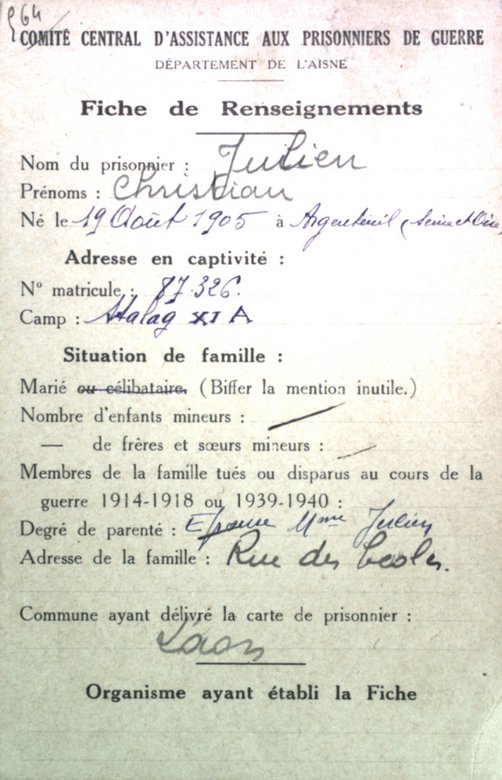 964
COMITÉ CENTRAL D'ASSISTANCE AUX PRISONNIERS DE GUERRE
DÉPARTEMENT DE L'AISNE
Fiche de Renseignements
Nom du prisonnier : Julien
Prénoms : Christian
Né le 19 Août 1905 à Argenteuil (Seine et Oise)
Adresse en captivité :
N° matricule : 87.326.
Camp : Stalag XI A
Situation de famille :
Marié ou célibataire. (Biffer la mention inutile.)
Nombre d'enfants mineurs : /
— de frères et sœurs mineurs : /
Membres de la famille tués ou disparus au cours de la
guerre 1914-1918 ou 1939-1940 :
Degré de parenté : Epouse Mme Julien
Adresse de la famille : Rue des Ecoles.
Commune ayant délivré la carte de prisonnier :
Laon
Organisme ayant établi la Fiche